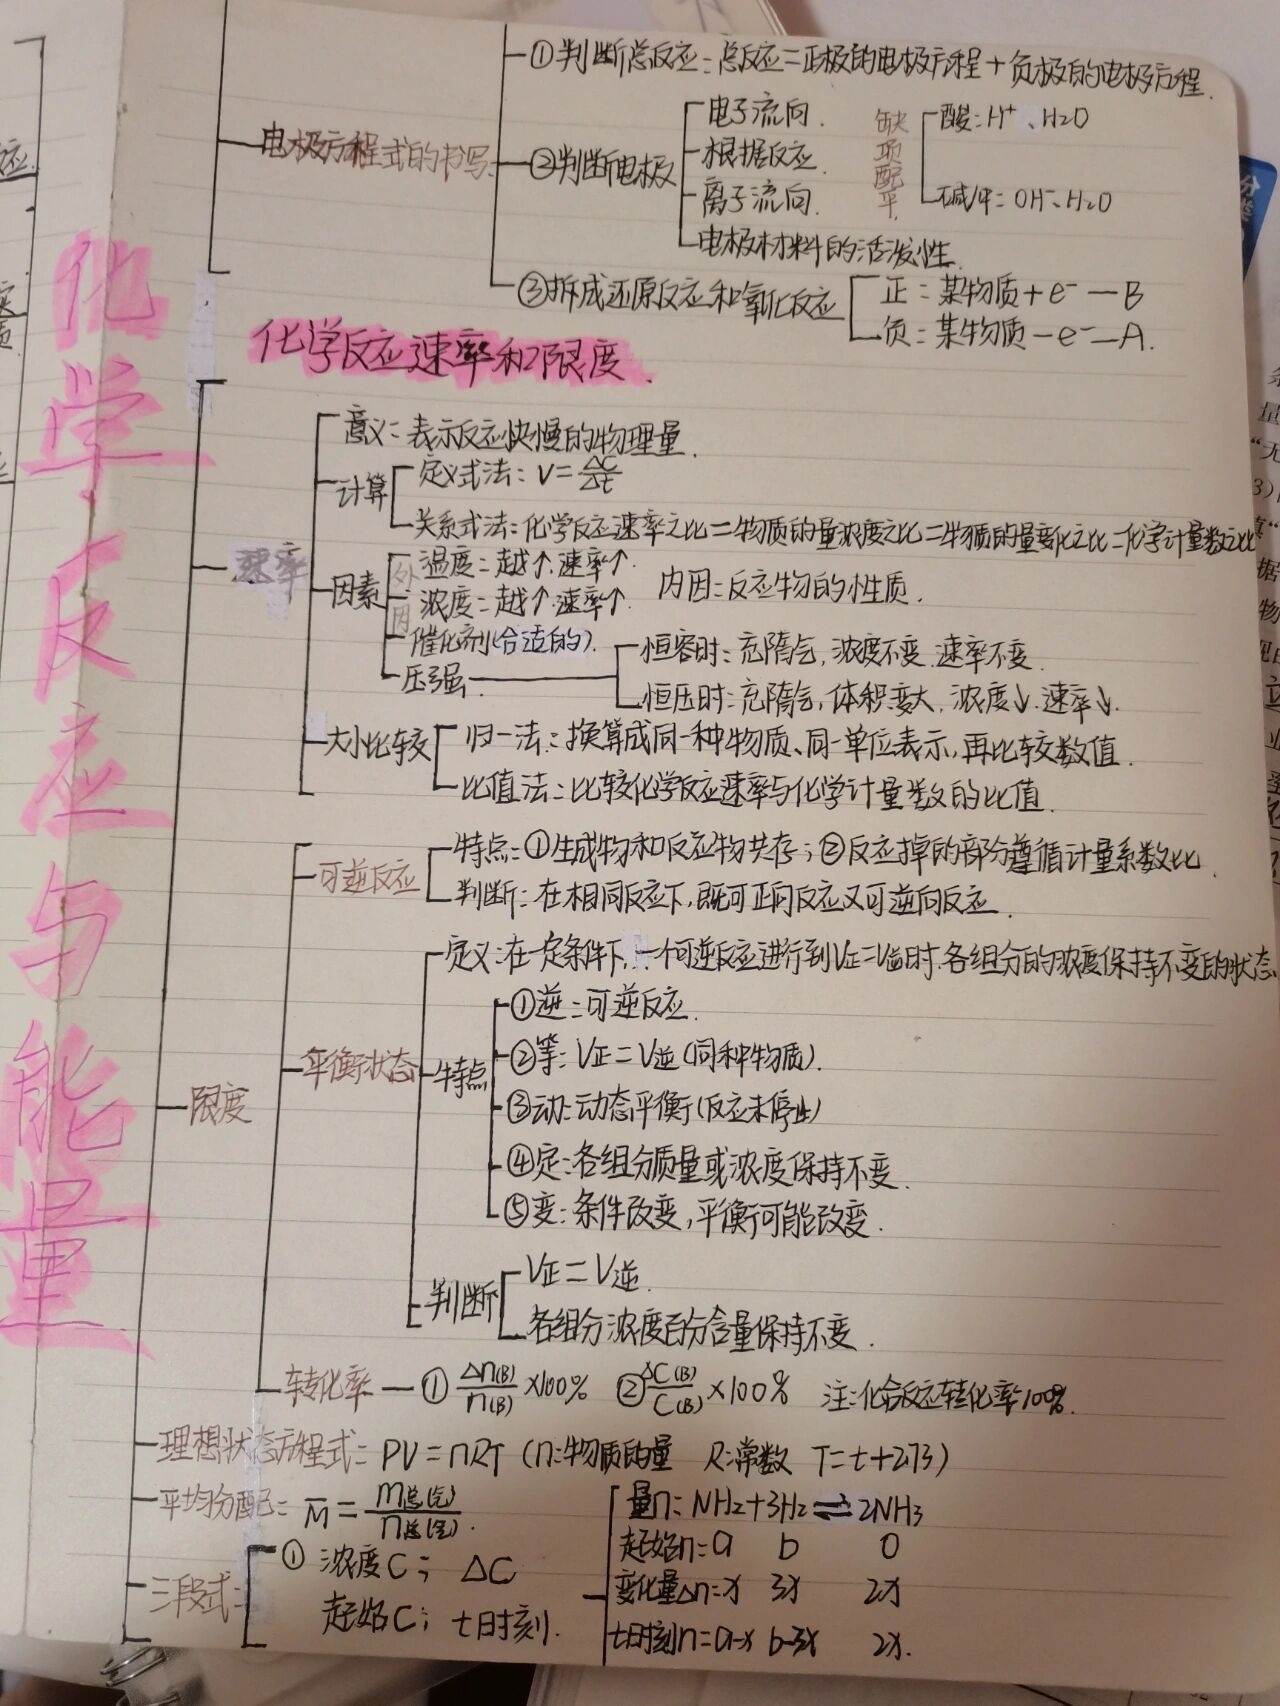 化学反应与能量
①判断总反应:总反应=正极的电极方程+负极的电极方程.
电极方程式的书写
②判断电极
电子流向.
根据反应.
离子流向.
电极材料的活泼性.
缺项配平.
酸:H⁺、H2O
碱/中:OH⁻、H2O
③拆成还原反应和氧化反应
正:某物质+e⁻—B
负:某物质-e⁻—A.
化学反应速率和限度.
速率
意义:表示反应快慢的物理量.
计算
定义式法:V=ΔC/Δt
关系式法:化学反应速率之比=物质的量浓度之比=物质的量变化之比=化学计量数之比
因素
外因
温度:越↑,速率↑.
浓度:越↑,速率↑.
内因:反应物的性质.
催化剂(合适的).
压强.
恒容时:充隋气,浓度不变.速率不变.
恒压时:充隋气,体积变大,浓度↓.速率↓.
大小比较
归一法:换算成同一种物质、同一单位表示,再比较数值.
比值法:比较化学反应速率与化学计量数的比值.
限度
可逆反应
特点:①生成物和反应物共存;②反应掉的部分遵循计量系数比.
判断:在相同反应下,既可正向反应又可逆向反应.
平衡状态
定义:在一定条件下,一个可逆反应进行到V正=V逆时.各组分的浓度保持不变的状态
特点
①逆:可逆反应.
②等:V正=V逆(同种物质).
③动:动态平衡(反应未停止)
④定:各组分质量或浓度保持不变.
⑤变:条件改变,平衡可能改变.
判断
V正=V逆.
各组分浓度百分含量保持不变.
转化率—①Δn(B)/n(B)×100% ②ΔC(B)/C(B)×100% 注:化合反应转化率100%.
理想状态方程式:PV=nRT(n:物质的量 R:常数 T=t+273)
平均分配:M̄=m总(气)/n总(气).
三段式:
①浓度C; ΔC
起始C; t时刻.
量n:NH2+3H2⇌2NH3
起始n:a b 0
变化量Δn=x 3x 2x
t时刻n=a-x b-3x 2x.